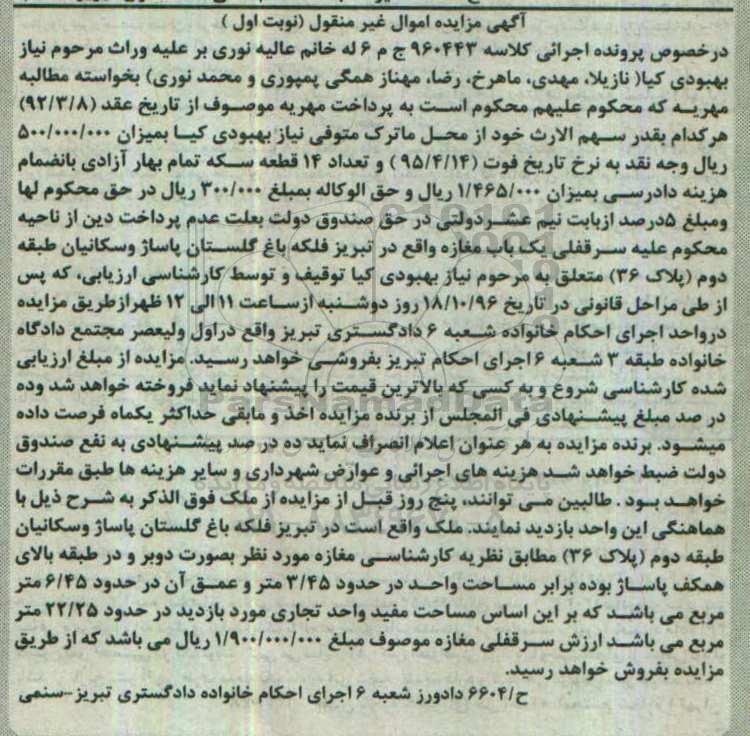 آگهی مزایده اموال غیر منقول (نوبت اول )
درخصوص پرونده اجرائی کلاسه ۹۶۰۴۴۳ ج م ۶ له خانم عالیه نوری بر علیه وراث مرحوم نیاز
بهبودی کیا( نازیلا، مهدی، ماهرخ، رضا، مهناز همگی پمپوری و محمد نوری) بخواسته مطالبه
مهریـه که محکوم علیهم محکوم است به پرداخت مهریه موصـوف از تاریخ عقد (۹۲/۳/۸)
هرکدام بقدر سـهم الارث خود از محـل ماترک متوفی نیاز بهبودی کیـا بمیزان ۵۰۰/۰۰۰/۰۰۰
ریال وجه نقد به نرخ تاریخ فوت (۹۵/۴/۱۴ ) و تعداد ۱۴ قطعه سـکه تمام بهار آزادی بانضمام
هزینه دادرسـی بمیزان ۱/۴۶۵/۰۰۰ ریال و حق الوکاله بمبلغ ۳۰۰/۰۰۰ ریال در حق محکوم لها
ومبلغ ۵درصد ازبابت نیم عشـردولتی در حق صندوق دولت بعلت عدم پرداخت دین از ناحیه
محکوم علیه سـرقفلی یک باب مغازه واقع در تبریز فلکه باغ گلسـتان پاساژ وسکانیان طبقه
دوم (پلاک ۳۶) متعلق به مرحوم نیاز بهبودی کیا توقیف و توسط کارشناسی ارزیابی، که پس
از طی مراحل قانونی در تاریخ ۱۸/۱۰/۹۶ روز دوشـنبه ازسـاعت ۱۱ الی ۱۲ ظهرازطریق مزایده
درواحد اجرای احکام خانواده شـعبه ۶ دادگسـتری تبریز واقع دراول ولیعصر مجتمع دادگاه
خانواده طبقه ۳ شـعبه ۶ اجرای احکام تبریز بفروشـی خواهد رسـید. مزایده از مبلغ ارزیابی
شده کارشناسی شروع و به کسـی که بالاترین قیمت را پیشنهاد نماید فروخته خواهد شد وده
در صد مبلغ پیشـنهادی فی المجلس از برنده مزایده اخذ و مابقی حداکثر یکماه فرصت داده
میشـود. برنده مزایده به هر عنوان اعلام انصراف نماید ده در صد پیشـنهادی به نفع صندوق
دولت ضبط خواهد شـد هزینه های اجرائی و عوارض شهرداری و سایر هزینه ها طبق مقررات
خواهـد بـود . طالبین مـی توانند، پنج روز قبـل از مزایده از ملک فوق الذکر به شـرح ذیل با
هماهنگی این واحد بازدید نمایند. ملک واقع است در تبریز فلکه باغ گلستان پاساژ وسکانیان
طبقه دوم (پلاک ۳۶) مطابق نظریه کارشناسـی مغازه مورد نظر بصورت دوبر و در طبقه بالای
همکف پاسـاژ بوده برابر مسـاحت واحـد در حدود ۳/۴۵ متر و عمـق آن در حدود ۶/۴۵ متر
مربع می باشـد که بر این اساس مساحت مفید واحد تجاری مورد بازدید در حدود ۲۲/۲۵ متر
مربع می باشـد ارزش سـرقفلی مغازه موصوف مبلغ ۱/۹۰۰/۰۰۰/۰۰۰ ریال می باشد که از طریق
مزایده بفروش خواهد رسید.
ح/۶۶۰۴ دادورز شعبه ۶ اجرای احکام خانواده دادگستری تبریز-سنمی
ParsNamadData